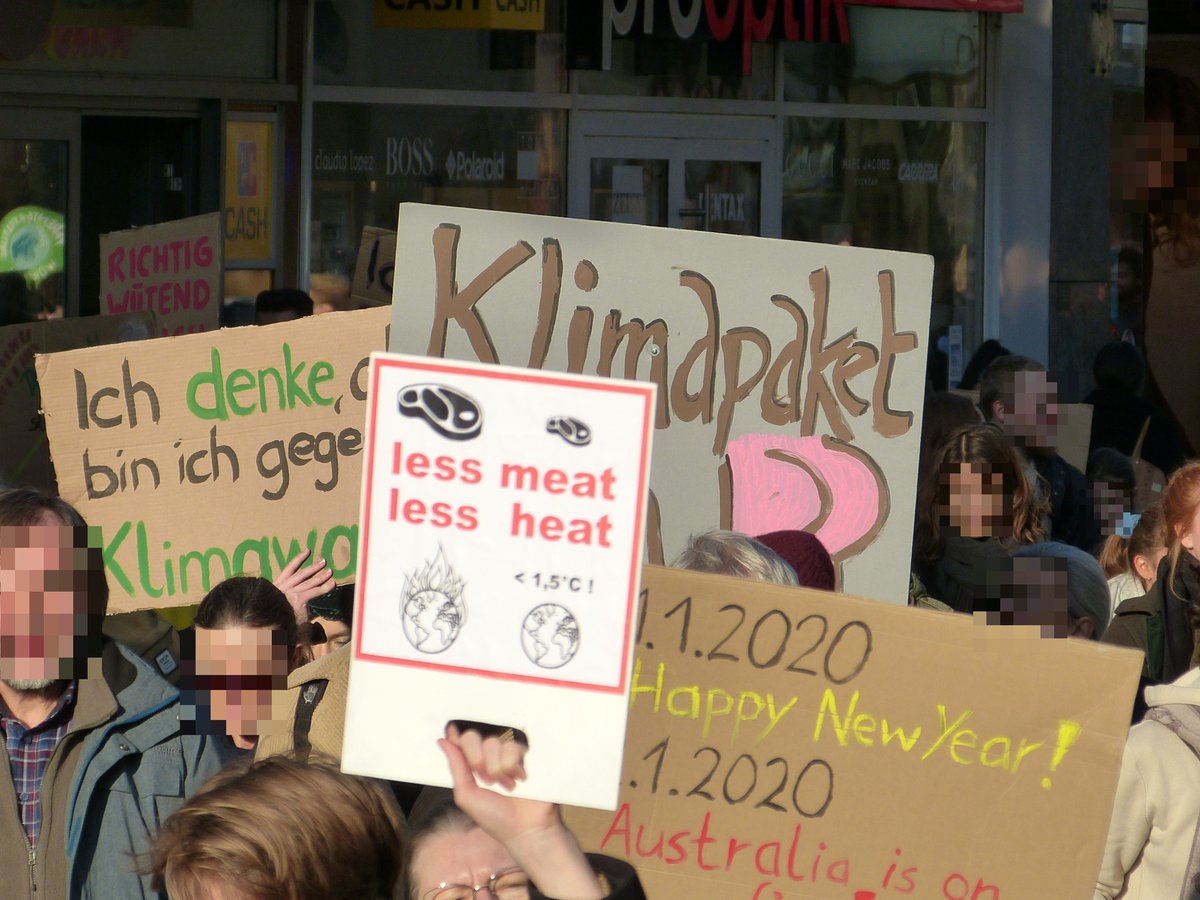 CASH
CASH
prooptik
claudio lopez
BOSS
Polaroid
MARC JACOBS
CARRERA
CASH
RICHTIG
WÜTEND
Klimapaket
Ich denke,
bin ich gege
Klimawa
less meat
less heat
< 1,5°C !
.1.2020
Happy New Year!
.1.2020
Australia is on